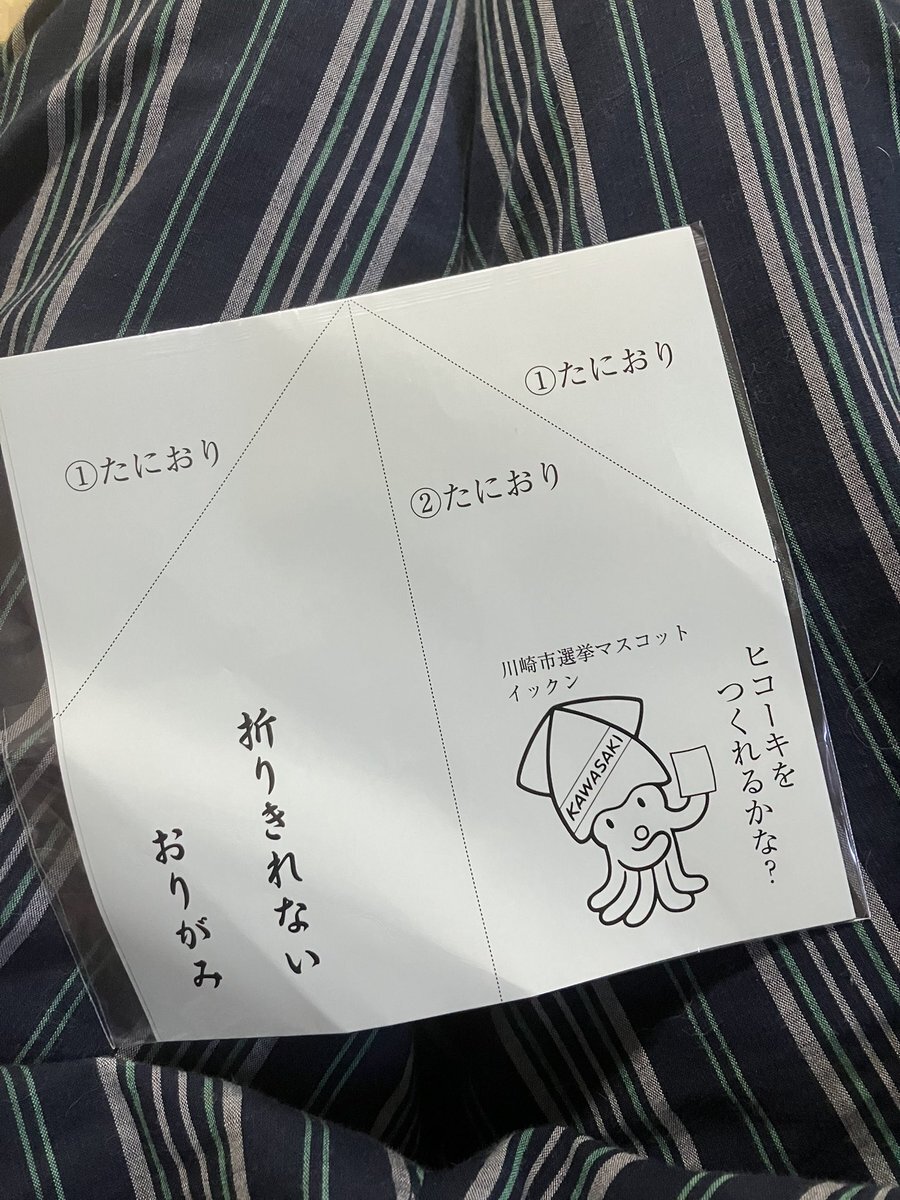 ①たにおり
①たにおり
②たにおり
川崎市選挙マスコット
イックン
KAWASAKI
ヒコーキを
つくれるかな？
折りきれない
おりがみ